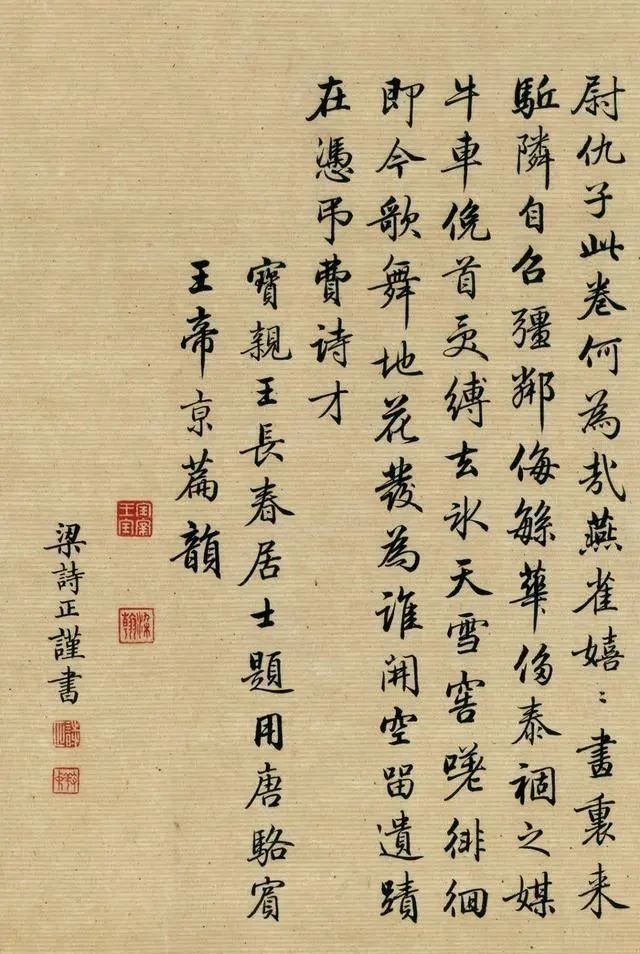 尉仇子此卷何為哉燕雀嬉〻畫裏来
駈隣自召彊鄰侮緐華侈泰禍之媒
牛車俛首受縛去氷天雪窖嗟徘徊
即今歌舞地花發為誰開空留遺蹟
在憑吊費詩才
寶親王長春居士題用唐駱賓
王帝京篇韻
寶親王寶
染翰
梁詩正謹書